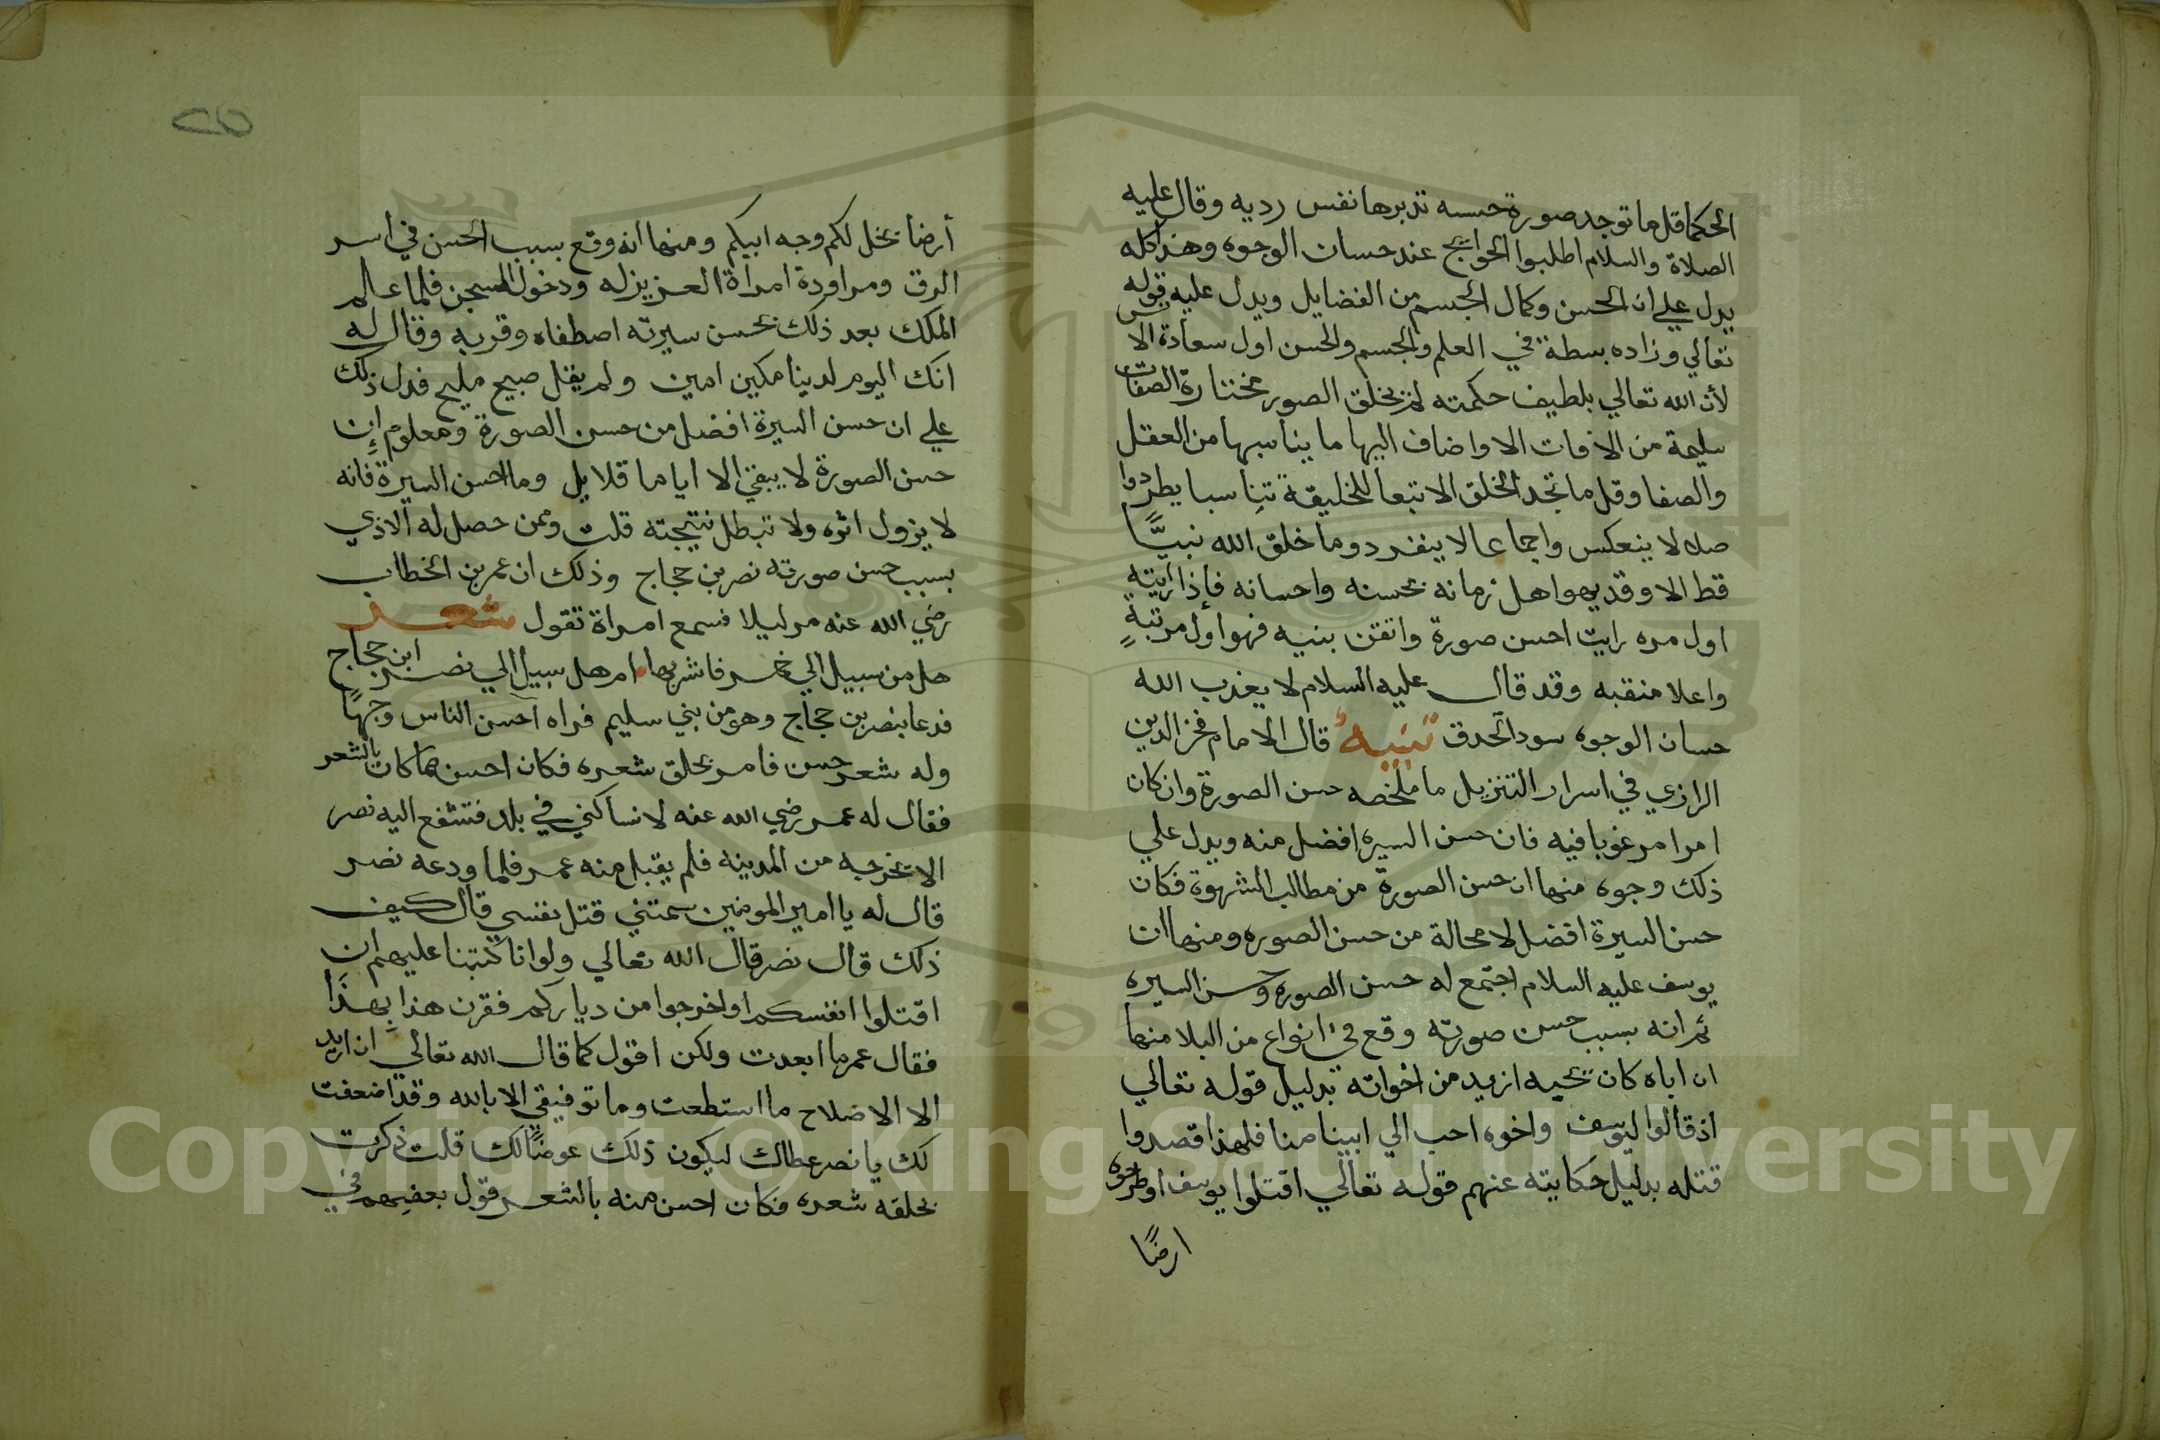 الحكما قل ما توجد صورة حسنه تدبرها نفس رديه وقال عليه
الصلاة والسلام اطلبوا الحوايج عند حسان الوجوه وهذا كله
يدل علي ان الحسن وكمال الجسم من الفضايل ويدل عليه قوله
تعالي وزاده بسطة في العلم والجسم والحسن اول سعادة الا
لأن الله تعالي بلطيف حكمته لم يخلق الصور مختارة الصفات
سليمة من الافات الا واضاف اليها ما يناسبها من العقل
والصفا وقل ما تجد الخلق الا تبعا للخليقة تناسبا يطردوا
صله لا ينعكس واجماعا لا ينفرد وما خلق الله نبيًّا
قط الا وقد يهوا هل زمانه بحسنه واحسانه فإذا رايته
اول مره رايت احسن صورة واتقن بنيه فهو اول مرتبةٍ
واعلا منقبه وقد قال عليه السلام لا يعذب الله
حسان الوجوه سود الحدق تنبيه قال الامام فخر الدين
الرازي في اسرار التنزيل ما ملخصه حسن الصورة وان كان
امرا مرغوبا فيه فان حسن السيره افضل منه ويدل علي
ذلك وجوه منها ان حسن الصورة من مطالب الشهوة فكان
حسن السيرة افضل لا محالة من حسن الصوره ومنها ان
يوسف عليه السلام اجتمع له حسن الصوره وحسن السيره
ثم انه بسبب حسن صورته وقع في انواع من البلا منها
ان اباه كان يحبه ازيد من اخواته بدليل قوله تعالي
اذ قالوا ليوسف واخوه احب الي ابينا منا فلهذا قصدوا
قتله بدليل حكايته عنهم قوله تعالي اقتلوا يوسف او اطرحوه
ارضًا
٢٥
أرضا يخل لكم وجه ابيكم ومنها انه وقع بسبب الحسن في اسر
الرق ومراودة امراة العزيز له ودخول السجن فلما عالم
الملك بعد ذلك بحسن سيرته اصطفاه وقربه وقال له
انك اليوم لدينا مكين امين ولم يقل صبيح مليح فدل ذلك
علي ان حسن السيرة افضل من حسن الصورة ومعلوم إن
حسن الصورة لا يبقي الا اياما قلايل وما الحسن السيرة فانه
لا يزول اثره ولا تبطل نتيجته قلت وممن حصل له الاذي
بسبب حسن صورته نصر بن حجاج وذلك ان عمر بن الخطاب
رضي الله عنه مر ليلا فسمع امراة تقول شعر
هل من سبيل الي خمر فاشربها ام هل سبيل الي نصر ابن حجاج
فدعا بنصر بن حجاج وهو من بني سليم فراه احسن الناس وجهًا
وله شعر حسن فامر بحلق شعره فكان احسن مما كان بالشعر
فقال له عمر رضي الله عنه لا تساكني في بلد فتشفع اليه نصر
الا تخرجه من المدينه فلم يقبل منه عمر فلما ودعه نصر
قال له يا امير المومنين سمتني قتل نفسي قال كيف
ذلك قال نصر قال الله تعالي ولو انا كتبنا عليهم ان
اقتلوا انفسكم او اخرجوا من دياركم فقرن هذا بِهذَا
فقال عمر ما ابعدت ولكن اقول كما قال الله تعالي ان اريد
الا الاصلاح ما استطعت وما توفيقي الا بالله وقد اضعفت
لك يا نصر عطاك ليكون ذلك عوضًا لك قلت ذكرت
بحلقه شعره فكان احسن منه بالشعر قول بعضهم في
Copyright © King Saud University